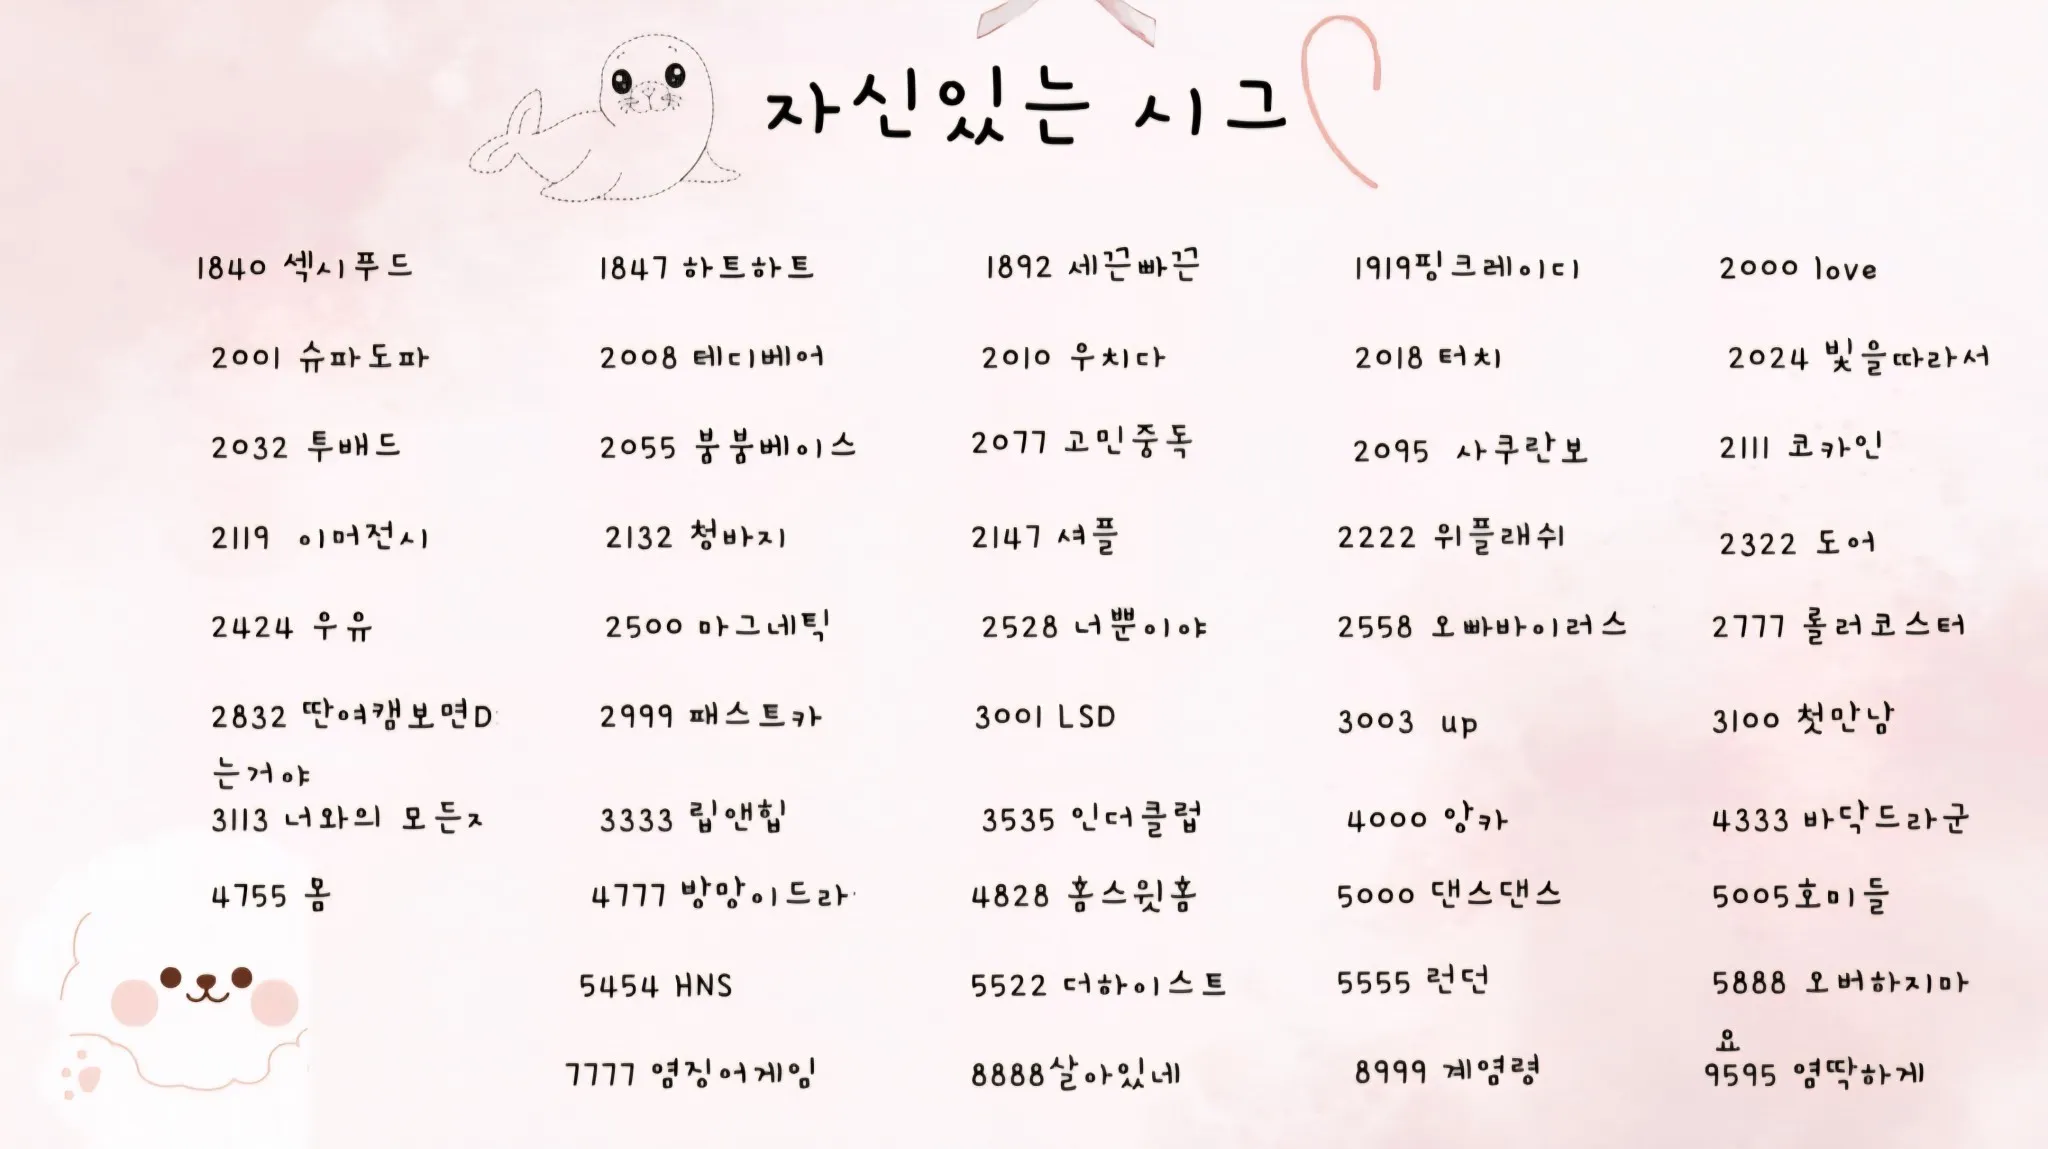 자신있는 시그
1840 섹시푸드 1847 하트하트 1892 세끈빠끈 1919핑크레이디 2000 love
2001 슈파도파 2008 테디베어 2010 우치다 2018 터치 2024 빛을따라서
2032 투배드 2055 붐붐베이스 2077 고민중독 2095 사쿠란보 2111 코카인
2119 이머전시 2132 청바지 2147 셔플 2222 위플래쉬 2322 도어
2424 우유 2500 마그네틱 2528 너뿐이야 2558 오빠바이러스 2777 롤러코스터
2832 딴여캠보면D 2999 패스트카 3001 LSD 3003 up 3100 첫만남
는거야
3113 너와의 모든ㅈ 3333 립앤힙 3535 인더클럽 4000 앙카 4333 바닥드라군
4755 몸 4777 방망이드라 4828 홈스윗홈 5000 댄스댄스 5005호미들
5454 HNS 5522 더하이스트 5555 런던 5888 오버하지마
요
7777 염징어게임 8888살아있네 8999 계염령 9595 염딱하게